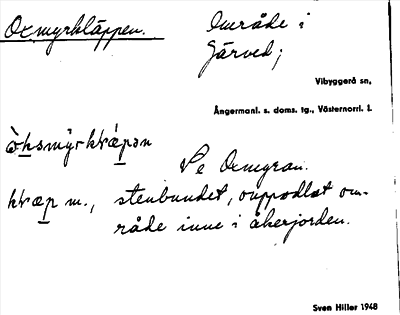 Oxmyrkläppen.
Område i
Järved;
Vibyggerå sn,
Ångermanl. s. doms. tg., Västernorrl. l.
Se Oxmyran.
m., stenbundet, ouppodlat om-
råde inne i åkerjorden.
Sven Hiller 1948